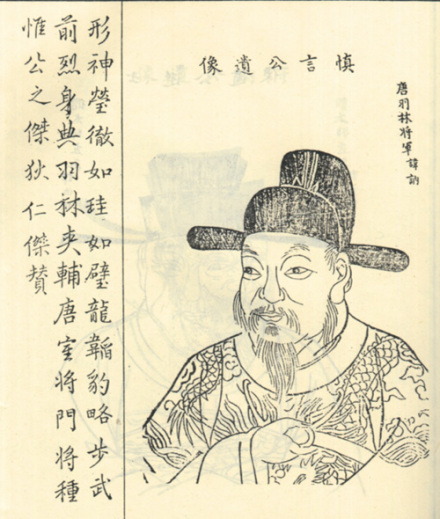 唐羽林将軍諱訥
慎言公遺像
形神瑩徹如珪如璧龍韜豹略步武
前烈身典羽林夾輔唐室将門将種
惟公之傑狄仁傑贊